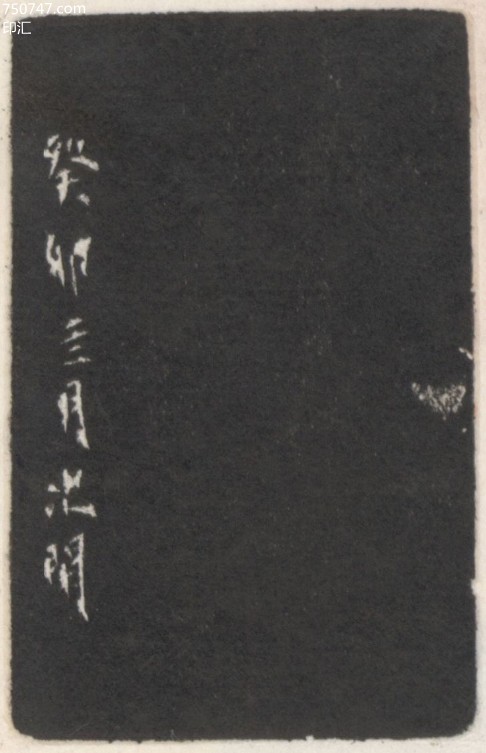 750747.com
印汇
癸卯三月池開